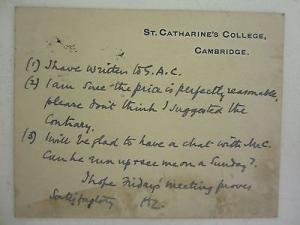 ST. CATHARINE'S COLLEGE,
CAMBRIDGE.
(1) I have written to G.A.C.
(2) I am sure the price is perfectly reasonable,
please don't think I suggested the
contrary.
(3) I will be glad to have a chat with McC.
Can he run up & see me on a Sunday?
I hope Friday's meeting proves
satisfactory